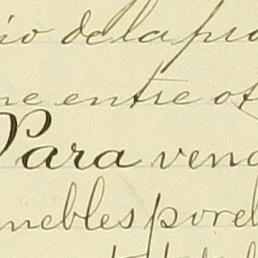 io de la pro
ne entre ot
Para vend
muebles por el